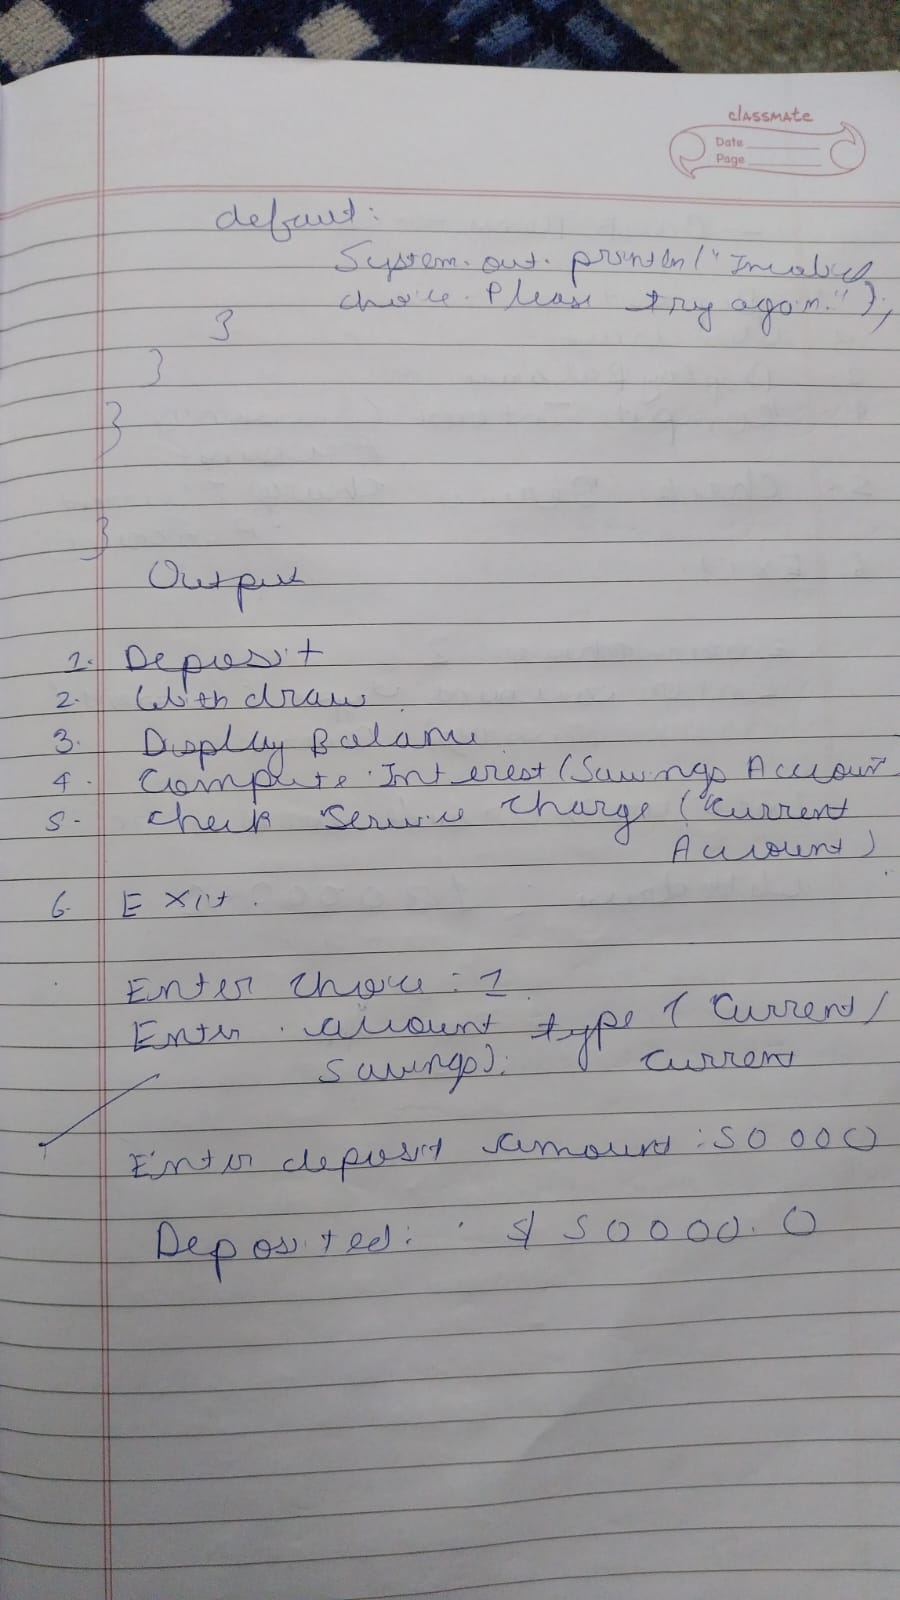 classmate
Date
Page
default:
System.out.println("Invalid
choice. Please try again.");
}
}
}
}
Output
1. Deposit
2. Withdraw
3. Display Balance
4. Compute Interest (Savings Account
5. Check Service Charge (Current
Account)
6. Exit.
Enter choice: 1
Enter account type (Current/
Savings): Current
Enter deposit amount: 50000
Deposited: $50000.0